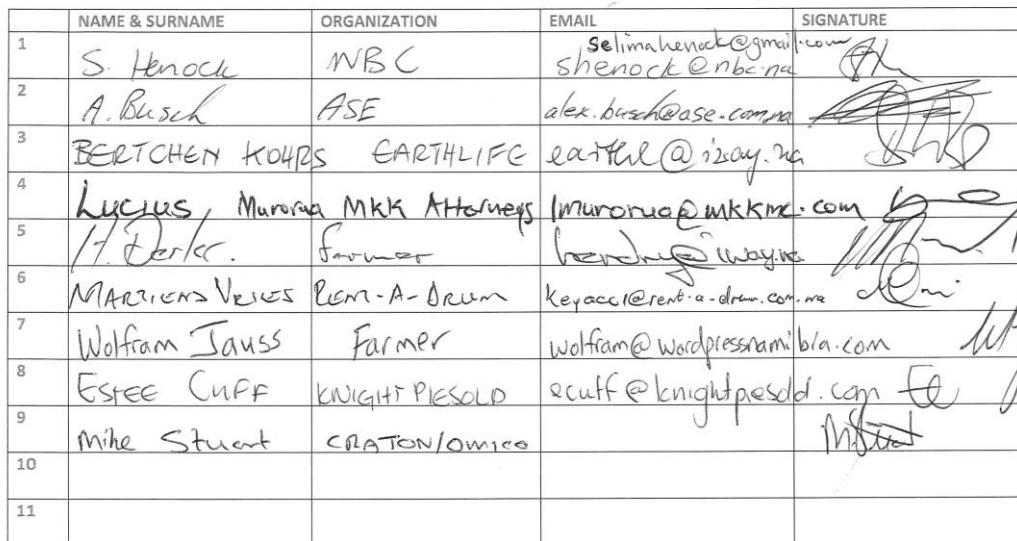 NAME & SURNAME ORGANIZATION EMAIL SIGNATURE
1 selimahenock@gmail.com
S. Henock NBC shenock@nbc.na
2 A. Busch ASE alex.busch@ase.com.na
3 BERTCHEN KOHRS EARTHLIFE earthl@iway.na
4 Lucius Murorua MKK Attorneys lmurorua@mkkmc.com
5 H. Farmer @iway.na
6 MARTIENS VRIES RENT-A-DRUM keyacc1@rent-a-drum.com.na
7 Wolfram Jauss Farmer wolfram@wordpressnamibia.com
8 ESTEE CUFF KNIGHT PIESOLD ecuff@knightpiesold.com
9 Mike Stuart CRATON/OMICO
10
11